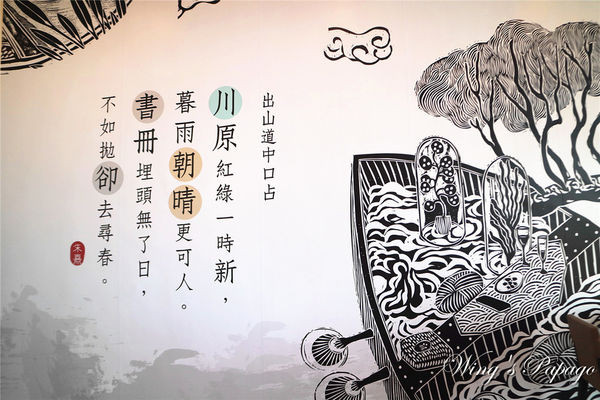 出山道中口占
川原紅綠一時新，
暮雨朝晴更可人。
書冊埋頭無了日，
不如拋卻去尋春。
朱熹
Wing's Papago